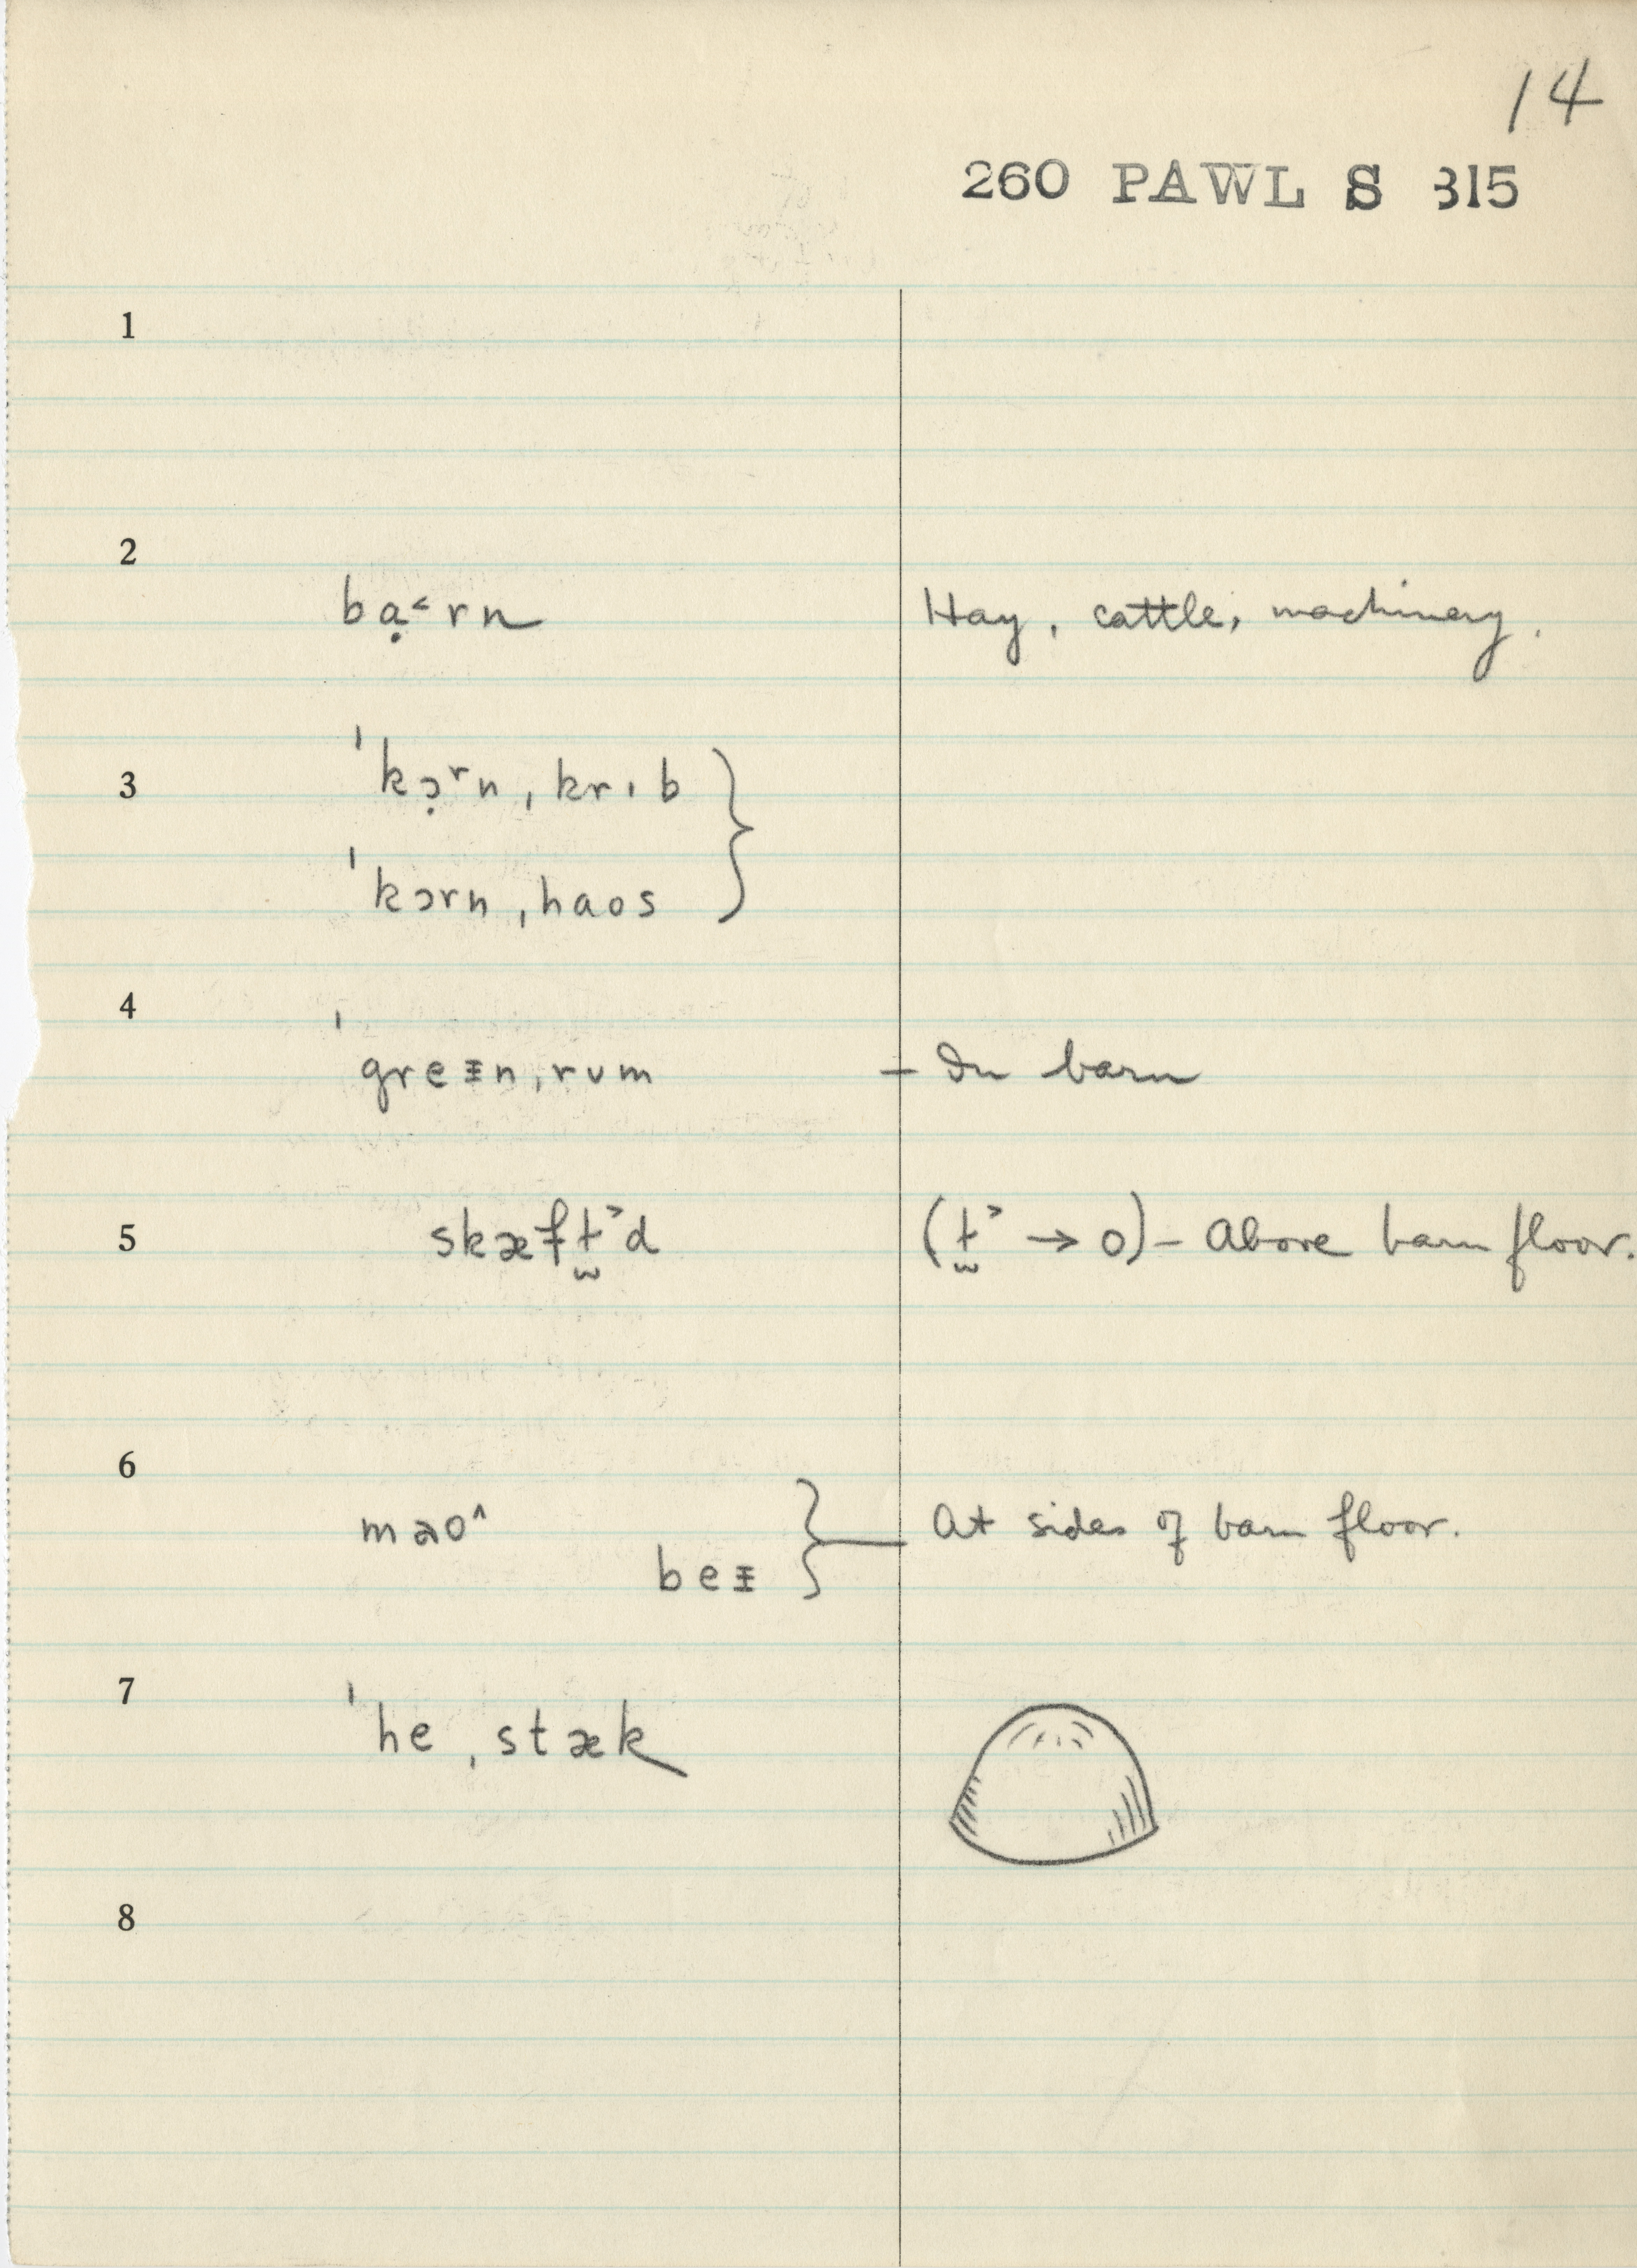 14
260 PAWL S 315
1
2
bạ˂rn Hay, cattle, machinery.
3 ˈkɔ̣ʳn ˌkrɪb }
ˈkɔrn ˌhaos
4
ˈgreᵻn ˌrʊm — In barn
5 skæf d ( → 0) – Above barn floor.
6
mao^ } At sides of barn floor.
beᵻ
7
ˈhe ˌstæk
8